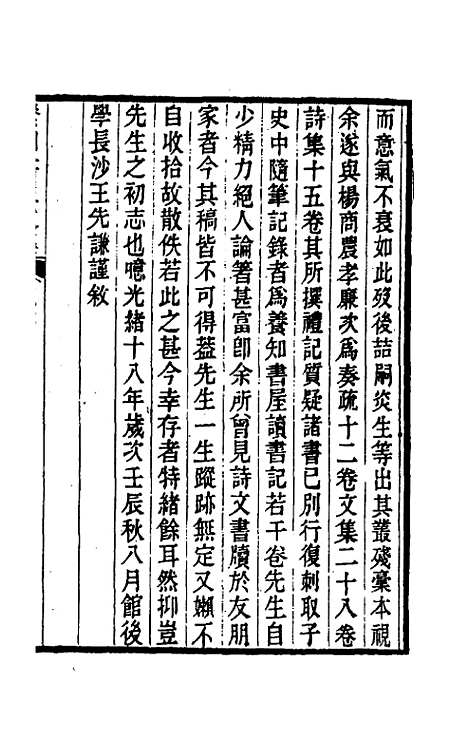 而意氣不衰如此歿後喆嗣炎生等出其叢殘槀本視
余遂與楊商農孝廉次爲奏疏十二卷文集二十八卷
詩集十五卷其所撰禮記質疑諸書已別行復刺取子
史中隨筆記錄者爲養知書屋讀書記若干卷先生自
少精力絕人論箸甚富卽余所曾見詩文書牘於友朋
家者今其稿皆不可得葢先生一生蹤跡無定又嬾不
自收拾故散佚若此之甚今幸存者特緖餘耳然抑豈
先生之初志也噫光緒十八年歲次壬辰秋八月館後
學長沙王先謙謹敘